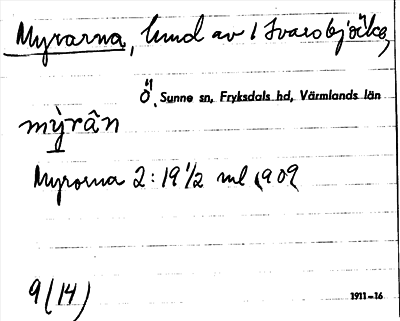 Myrarna, lund av 1 Svarsbjörke,
Ö. Sunne sn, Fryksdals hd, Värmlands län
mỳrân
Myrorna 2:19 1/2 ml 1909
9(14)
1911–16